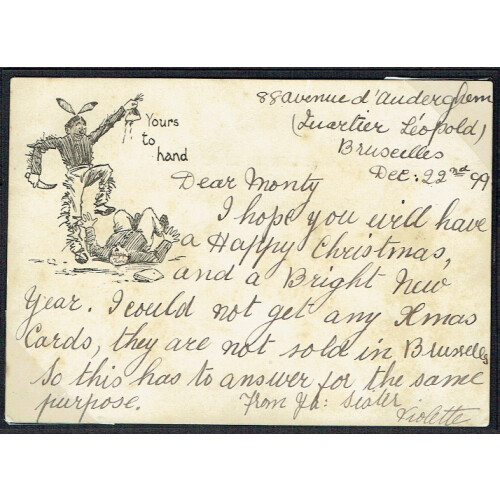 88 avenue d'Auderghem
(Quartier Léopold)
Bruxelles
Dec: 22nd 99
Yours
to
hand
Dear Monty
I hope you will have
a Happy Christmas,
and a Bright New
Year. I could not get any Xmas
Cards, they are not sold in Bruxelles
So this has to answer for the same
purpose. From yr: Sister
Violette